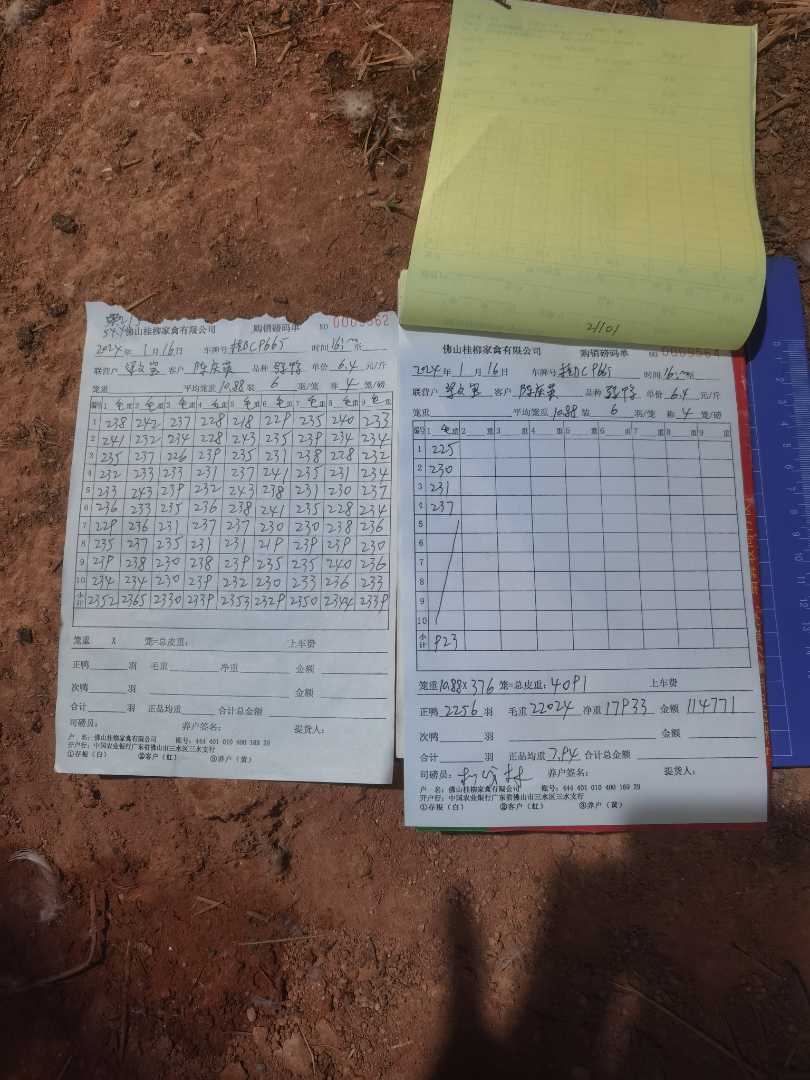 佛山桂柳家禽有限公司 购销磅码单 NO 0009562
2024年 1月16日 车牌号 桂DCP665 时间 16:
联营户 客户 陈庆英 品种 单价 6.4 元/斤
笼重 平均笼重 10.88 装 6 羽/笼 称 4 笼/磅
编号 1 毛重 2 毛重 3 毛重 4 毛重 5 毛重 6 毛重 7 毛重 8 毛重 9 毛重
1 238 242 237 228 218 229 235 240 233
2 241 232 234 228 243 235 239 234 234
3 235 237 226 239 235 231 238 228 232
4 232 233 233 231 237 241 235 231 234
5 233 243 239 232 243 238 231 230 237
6 236 233 235 236 238 241 235 228 234
7 229 236 231 237 237 230 230 238 236
8 235 237 235 231 231 219 239 239 230
9 239 238 230 238 239 235 235 240 236
10 234 234 230 239 232 230 233 236 233
小计 2352 2365 2330 2339 2353 2329 2350 2344 2339
笼重 X 笼=总皮重: 上车费
正鸭 羽 毛重 净重 金额
次鸭 羽 金额
合计 羽 正品均重 合计总金额
司磅员: 养户签名: 提货人:
户 名:佛山桂柳家禽有限公司 账号:444 401 010 400 169 29
开户行:中国农业银行广东省佛山市三水区三水支行
①存根(白) ②客户(红) ③养户(黄)
21101
佛山桂柳家禽有限公司 购销磅码单 NO 0009564
2024年 1月16日 车牌号 桂DCP665 时间 16:
联营户 客户 陈庆英 品种 单价 6.4 元/斤
笼重 平均笼重 10.88 装 6 羽/笼 称 4 笼/磅
编号 1 毛重 2 重 3 重 4 重 5 重 6 重 7 重 8 重 9 重
1 225
2 230
3 231
4 237
5
6
7
8
9
10
小计 923
笼重 10.88 X 376 笼=总皮重: 4091 上车费
正鸭 2256 羽 毛重 22024 净重 17933 金额 114771
次鸭 羽 金额
合计 羽 正品均重 7.94 合计总金额
司磅员: 养户签名: 提货人:
户 名:佛山桂柳家禽有限公司 账号:444 401 010 400 169 29
开户行:中国农业银行广东省佛山市三水区三水支行
①存根(白) ②客户(红) ③养户(黄)